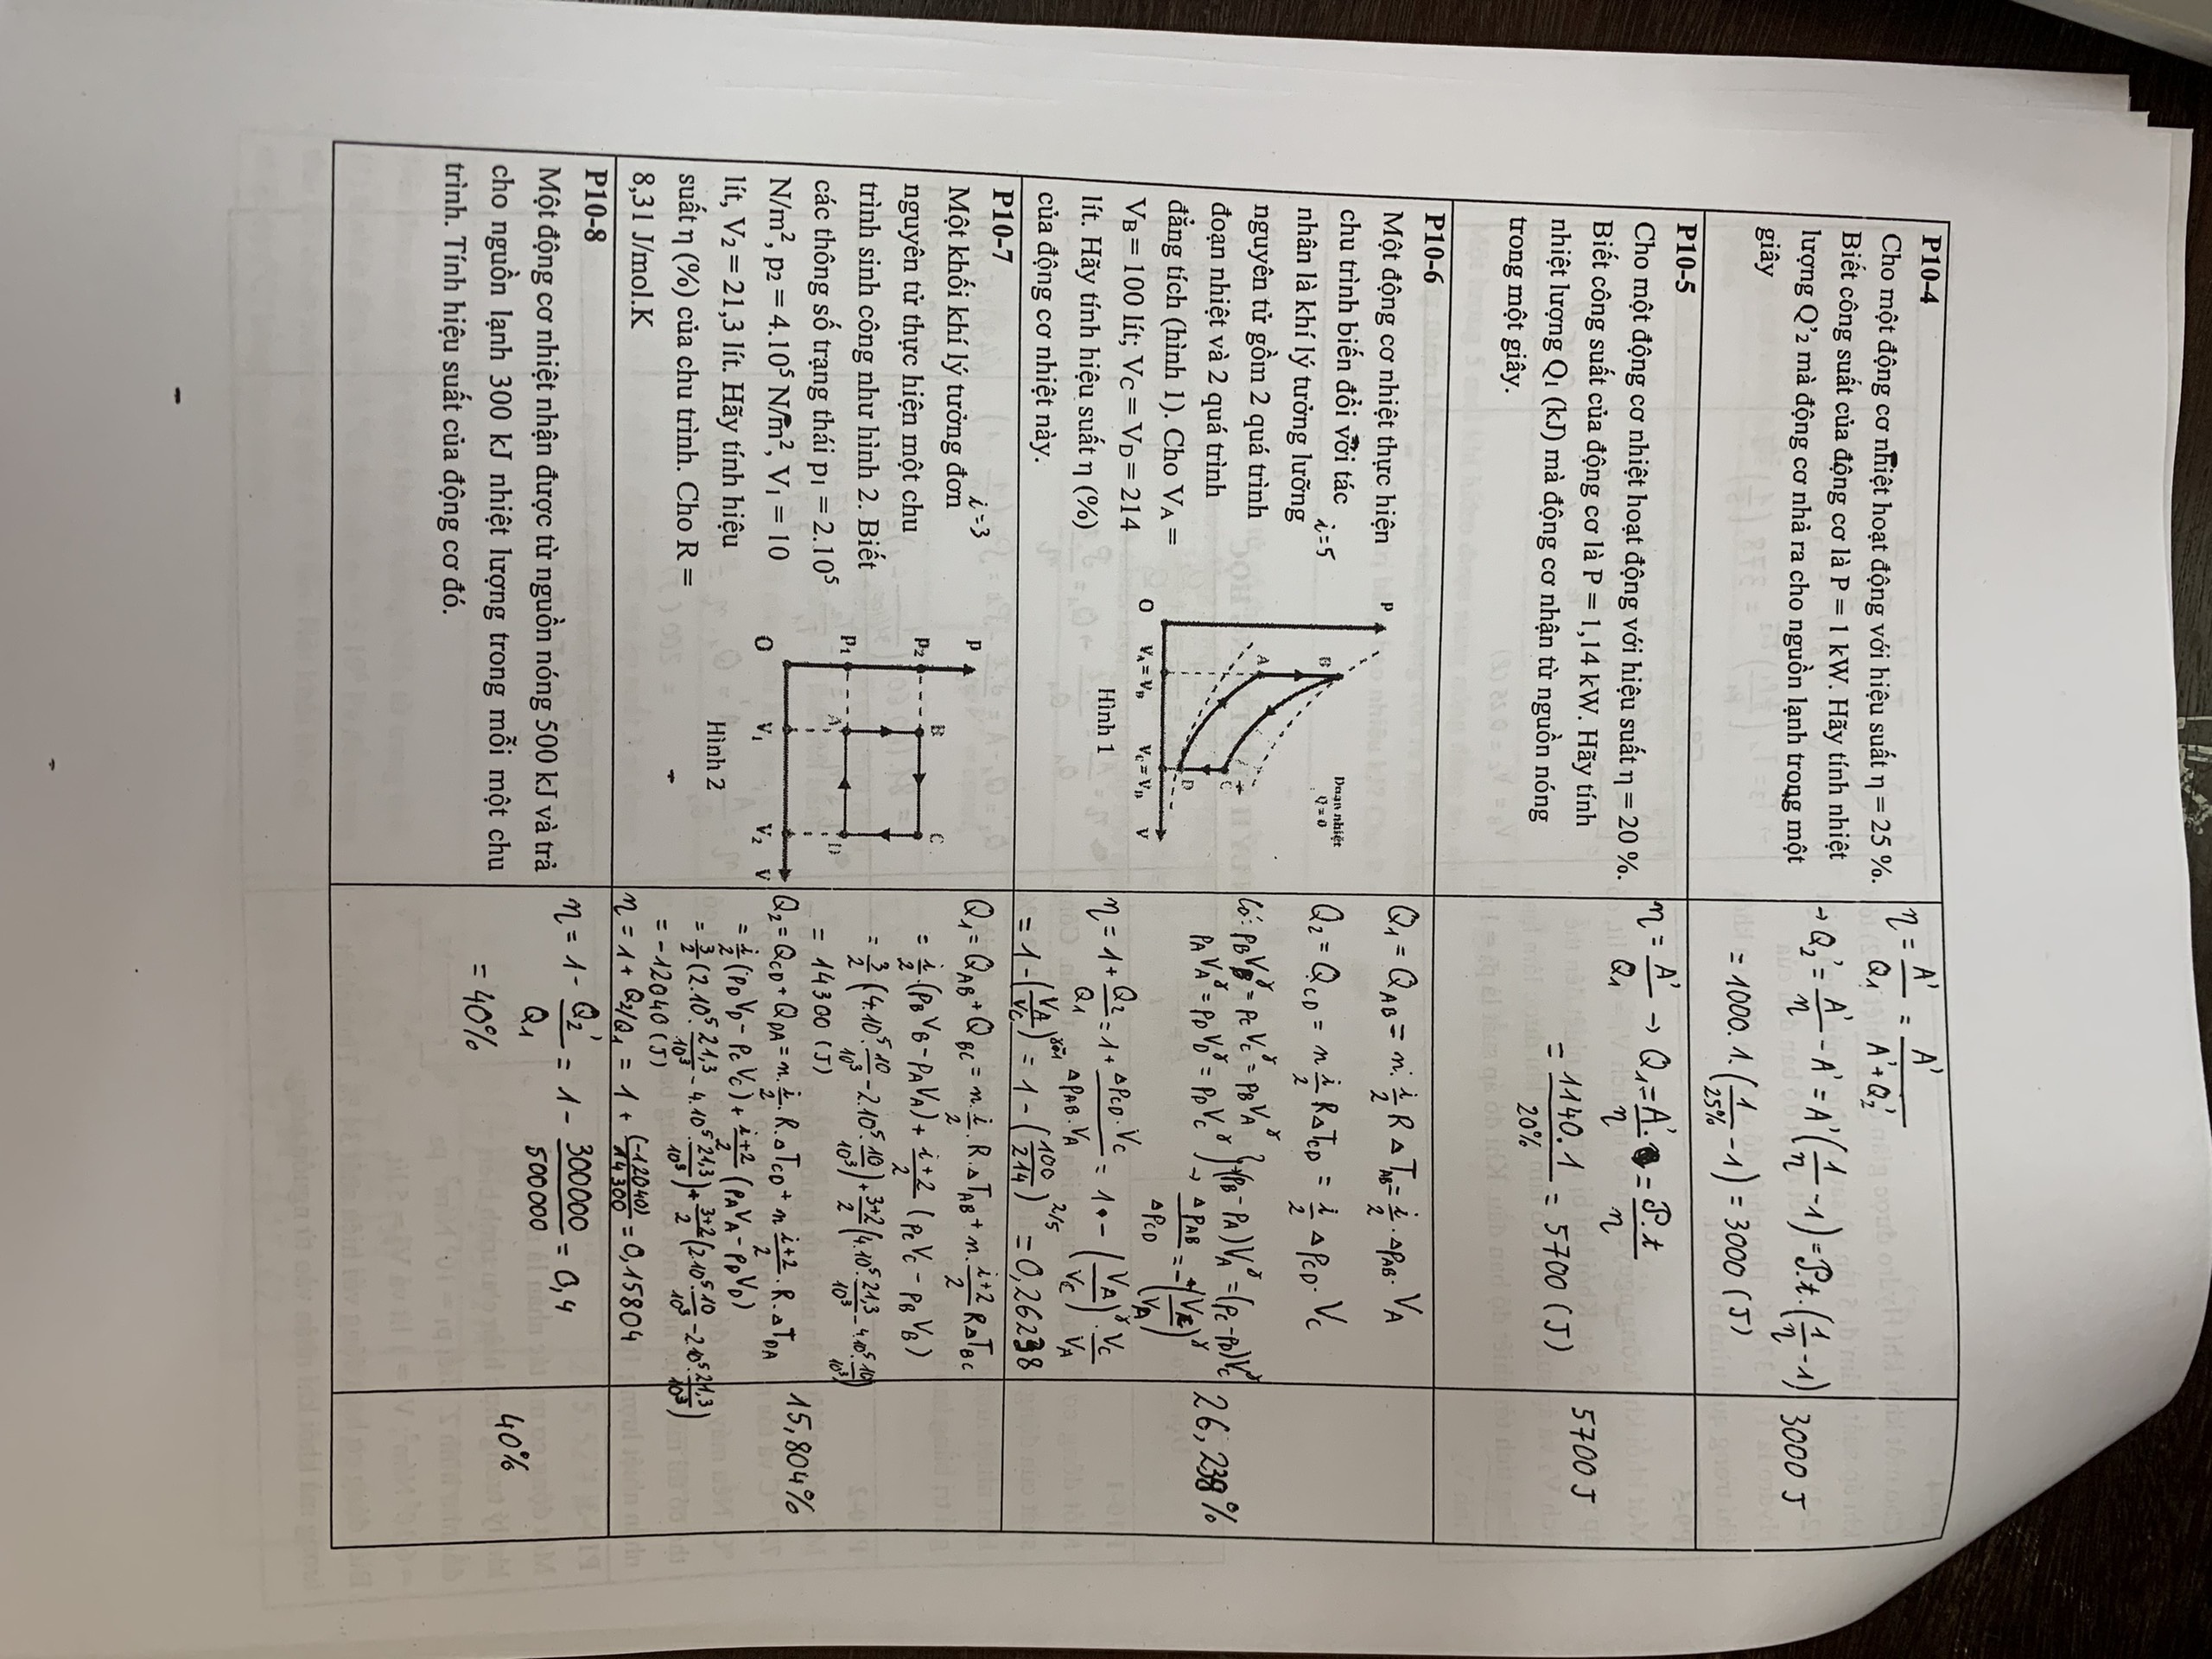 P10-4
Cho một động cơ nhiệt hoạt động với hiệu suất η = 25 %.
Biết công suất của động cơ là P = 1 kW. Hãy tính nhiệt
lượng Q'₂ mà động cơ nhả ra cho nguồn lạnh trong một
giây
η = A'/Q₁ = A'/(A'+Q₂')
→ Q₂' = A'/η - A' = A'(1/η - 1) = P.t.(1/η - 1)
= 1000.1.(1/25% - 1) = 3000 (J)
3000 J
P10-5
Cho một động cơ nhiệt hoạt động với hiệu suất η = 20 %.
Biết công suất của động cơ là P = 1,14 kW. Hãy tính
nhiệt lượng Q₁ (kJ) mà động cơ nhận từ nguồn nóng
trong một giây.
η = A'/Q₁ → Q₁ = A'/η = P.t/η
= 1140.1/20% = 5700 (J)
5700 J
P10-6
Một động cơ nhiệt thực hiện
chu trình biến đổi với tác i=5
nhân là khí lý tưởng lưỡng
nguyên tử gồm 2 quá trình
đoạn nhiệt và 2 quá trình
đẳng tích (hình 1). Cho V_A =
V_B = 100 lít; V_C = V_D = 214
lít. Hãy tính hiệu suất η (%)
của động cơ nhiệt này.
P
Đoạn nhiệt
Q = 0
B
A
C
D
O
V_A = V_B
V_C = V_D
V
Hình 1
Q₁ = Q_AB = n.i/2 R ΔT_AB = i/2.Δp_AB.V_A
Q₂ = Q_CD = n i/2 RΔT_CD = i/2 Δp_CD.V_C
Có: p_B V_B^γ = p_C V_C^γ = p_B V_A^γ } (p_B - p_A)V_A^γ = (p_C - p_D)V_C^γ
p_A V_A^γ = p_D V_D^γ = p_D V_C^γ } → Δp_AB/Δp_CD = -(V_C/V_A)^γ
η = 1 + Q₂/Q₁ = 1 + Δp_CD.V_C/Δp_AB.V_A = 1 - (V_A/V_C)^γ.V_C/V_A
= 1 - (V_A/V_C)^γ-1 = 1 - (100/214)^2/5 = 0,26238
26,238 %
P10-7
Một khối khí lý tưởng đơn i=3
nguyên tử thực hiện một chu
trình sinh công như hình 2. Biết
các thông số trạng thái p₁ = 2.10⁵
N/m², p₂ = 4.10⁵ N/m², V₁ = 10
lít, V₂ = 21,3 lít. Hãy tính hiệu
suất η (%) của chu trình. Cho R =
8,31 J/mol.K
P
P₂
P₁
B
C
A
D
O
V₁
V₂
V
Hình 2
Q₁ = Q_AB + Q_BC = n.i/2.R.ΔT_AB + n.(i+2)/2 RΔT_BC
= i/2.(p_B V_B - p_A V_A) + (i+2)/2 (p_C V_C - p_B V_B)
= 3/2 (4.10⁵.10/10³ - 2.10⁵.10/10³) + (3+2)/2 (4.10⁵.21,3/10³ - 4.10⁵.10/10³)
= 14300 (J)
Q₂ = Q_CD + Q_DA = n.i/2.R.ΔT_CD + n (i+2)/2.R.ΔT_DA
= i/2 (p_D V_D - p_C V_C) + (i+2)/2 (p_A V_A - p_D V_D)
= 3/2 (2.10⁵.21,3/10³ - 4.10⁵.21,3/10³) + (3+2)/2 (2.10⁵.10/10³ - 2.10⁵.21,3/10³)
= -12040 (J)
η = 1 + Q₂/Q₁ = 1 + (-12040)/14300 = 0,15804
15,804%
P10-8
Một động cơ nhiệt nhận được từ nguồn nóng 500 kJ và trả
cho nguồn lạnh 300 kJ nhiệt lượng trong mỗi một chu
trình. Tính hiệu suất của động cơ đó.
η = 1 - Q₂'/Q₁ = 1 - 300000/500000 = 0,4
= 40%
40%